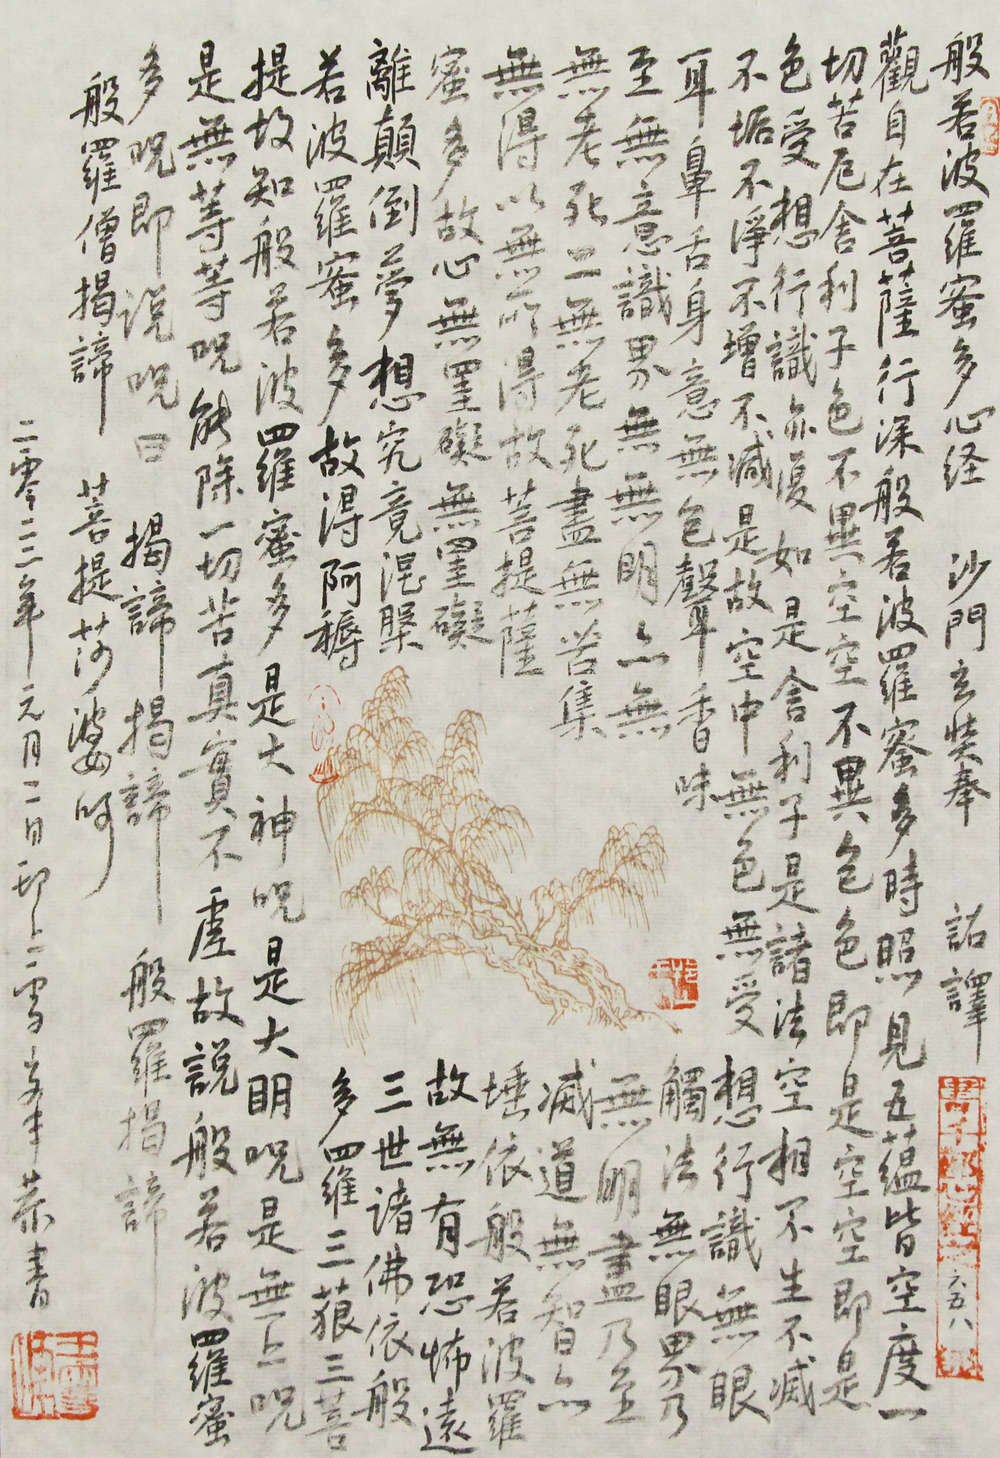 般若波羅蜜多心経 沙門玄奘奉 詔譯
觀自在菩薩行深般若波羅蜜多時照見五蘊皆空度一
切苦厄舍利子色不異空空不異色色即是空空即是
色受想行識亦復如是舍利子是諸法空相不生不滅
不垢不淨不增不減是故空中無色無受想行識無眼
耳鼻舌身意無色聲香味觸法無眼界乃
至無意識界無無明亦無無明盡乃至
無老死亦無老死盡無苦集滅道無智亦
無得以無所得故菩提薩埵依般若波羅
蜜多故心無罣礙無罣礙故無有恐怖遠
離顛倒夢想究竟涅槃三世諸佛依般
若波羅蜜多故得阿耨多羅三藐三菩
提故知般若波羅蜜多是大神咒是大明咒是無上咒
是無等等咒能除一切苦真實不虛故說般若波羅蜜
多咒即说咒曰 揭諦揭諦 般羅揭諦
般羅僧揭諦 菩提莎婆呵
二零二三年元月二日 恭書
六五八